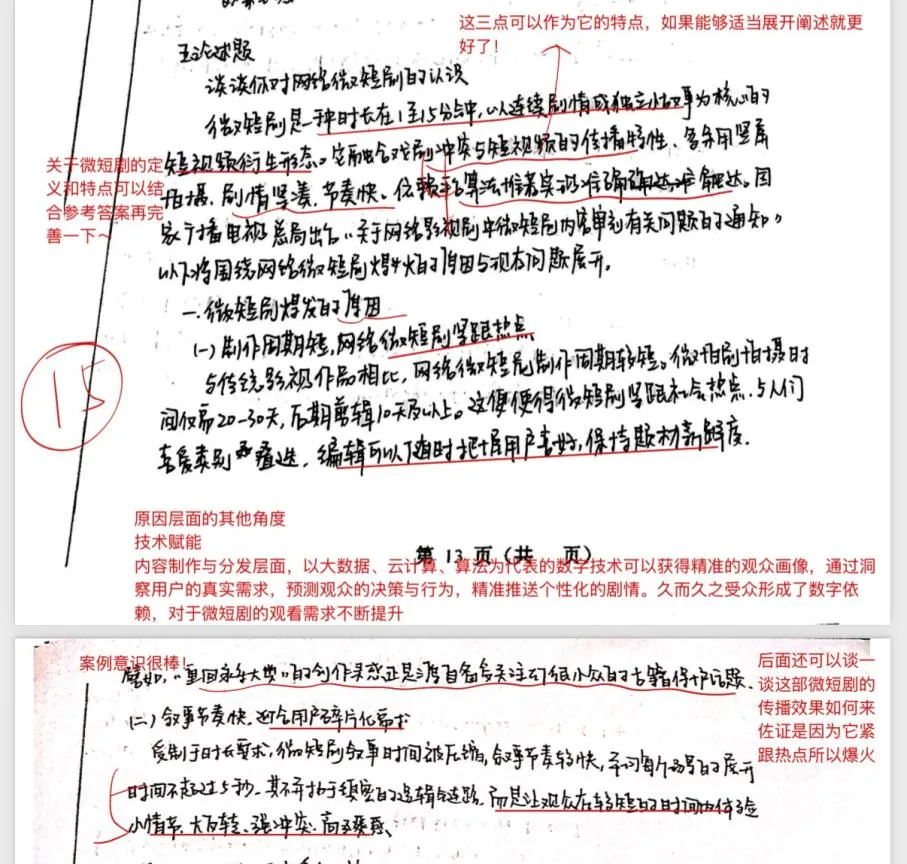 这三点可以作为它的特点，如果能够适当展开阐述就更
好了！
五论述题
谈谈你对网络微短剧的认识
微短剧是一种时长在1至15分钟，以连续剧情或独立小故事为核心的
短视频衍生形态。它融合戏剧冲突与短视频的传播特性，多采用竖屏
拍摄，剧情紧凑、节奏快。依靠平台算法推荐实现准确触达。国
家广播电视总局出台《关于网络影视剧中微短剧内容审核有关问题的通知》
以下将围绕网络微短剧爆火的原因与现存问题展开。
关于微短剧的定
义和特点可以结
合参考答案再完
善一下～
一、微短剧爆发的原因
（一）制作周期短，网络微短剧紧跟热点
与传统影视作品相比，网络微短剧制作周期较短。微短剧拍摄时
间仅需20-30天，后期剪辑10天及以上。这便使得微短剧紧跟社会热点，与人们
喜爱类别 ，编辑可以随时把握用户喜好，保持题材新鲜度。
15
原因层面的其他角度
技术赋能
第 13 页（共 页）
内容制作与分发层面，以大数据、云计算、算法为代表的数字技术可以获得精准的观众画像，通过洞
察用户的真实需求，预测观众的决策与行为，精准推送个性化的剧情。久而久之受众形成了数字依
赖，对于微短剧的观看需求不断提升
案例意识很棒！
譬如，“重回永乐大典”的创作灵感正是源自备受关注却很小众的古籍保护话题。
后面还可以谈一
谈这部微短剧的
传播效果如何来
佐证是因为它紧
跟热点所以爆火
（二）叙事节奏快，迎合用户碎片化需求
受制于时长要求，微短剧叙事时间被压缩，叙事节奏较快，平均每个场景的展开
时间不超过5秒。其不拘于缜密的逻辑链路，而是让观众在较短的时间内体验
小情节、大反转、强冲突、高爽感。